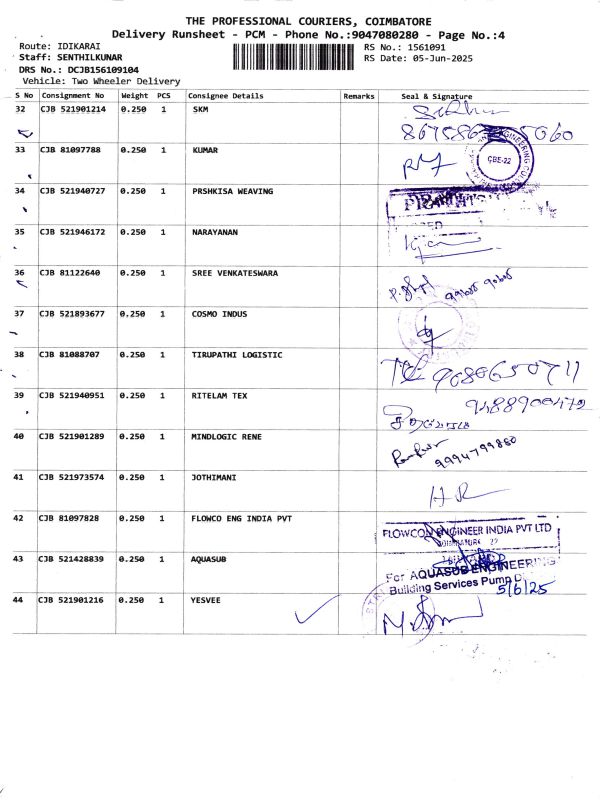 THE PROFESSIONAL COURIERS, COIMBATORE
Delivery Runsheet - PCM - Phone No.:9047080280 - Page No.:4
Route: IDIKARAI
RS No.: 1561091
Staff: SENTHILKUNAR
RS Date: 05-Jun-2025
DRS No.: DCJB156109104
Vehicle: Two Wheeler Delivery
S No Consignment No Weight PCS Consignee Details Remarks Seal & Signature
32 CJB 521901214 0.250 1 SKM
33 CJB 81097788 0.250 1 KUMAR
CBE-22
34 CJB 521940727 0.250 1 PRSHKISA WEAVING
35 CJB 521946172 0.250 1 NARAYANAN
36 CJB 81122640 0.250 1 SREE VENKATESWARA
37 CJB 521893677 0.250 1 COSMO INDUS
38 CJB 81088707 0.250 1 TIRUPATHI LOGISTIC
9080650711
39 CJB 521940951 0.250 1 RITELAM TEX
9488900472
40 CJB 521901289 0.250 1 MINDLOGIC RENE
9994799860
41 CJB 521973574 0.250 1 JOTHIMANI
HR
42 CJB 81097828 0.250 1 FLOWCO ENG INDIA PVT
FLOWCON ENGINEER INDIA PVT LTD
43 CJB 521428839 0.250 1 AQUASUB
For AQUASUB ENGINEERING
Building Services Pump
5/6/25
44 CJB 521901216 0.250 1 YESVEE